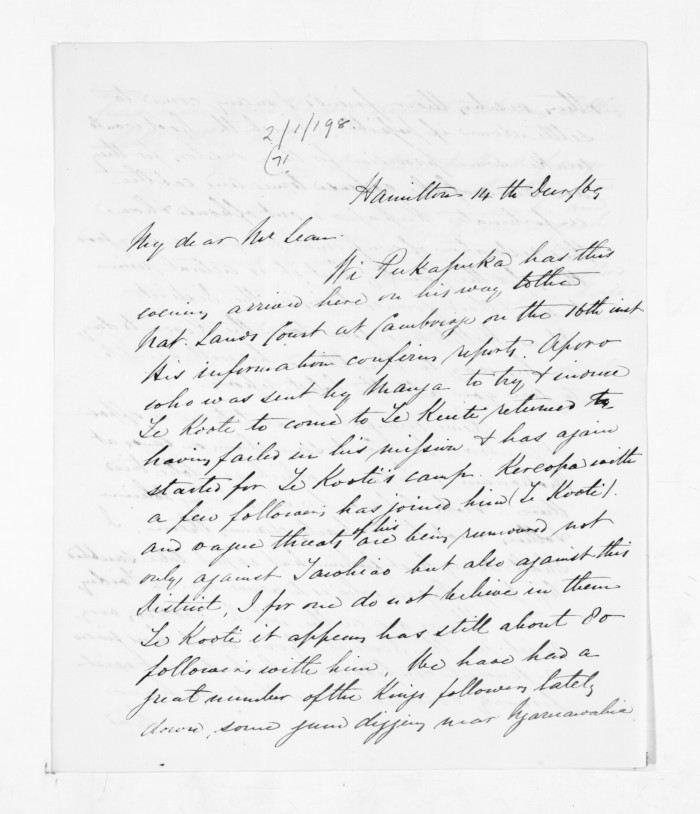 2/1/198
(71
Hamilton 14th Decr/69
My dear McLean.
Wi Pukapuka has this
evening arrived here on his way to the
Nat. Lands Court at Cambridge on the 16th inst
His information confirms reports. Aporo
who was sent by Manga to try & induce
Te Kooti to come to Te Kuiti returned
having failed in his mission & has again
started for Te Kooti's camp. Kereopa with
a few followers has joined him (Te Kooti).
and vague threats of his are being rumoured not
only against Tawhiao but also against this
District, I for one do not believe in them
Te Kooti it appears has still about 80
followers with him, We have had a
great number of the Kings followers lately
down, some gum digging near Ngaruawahia